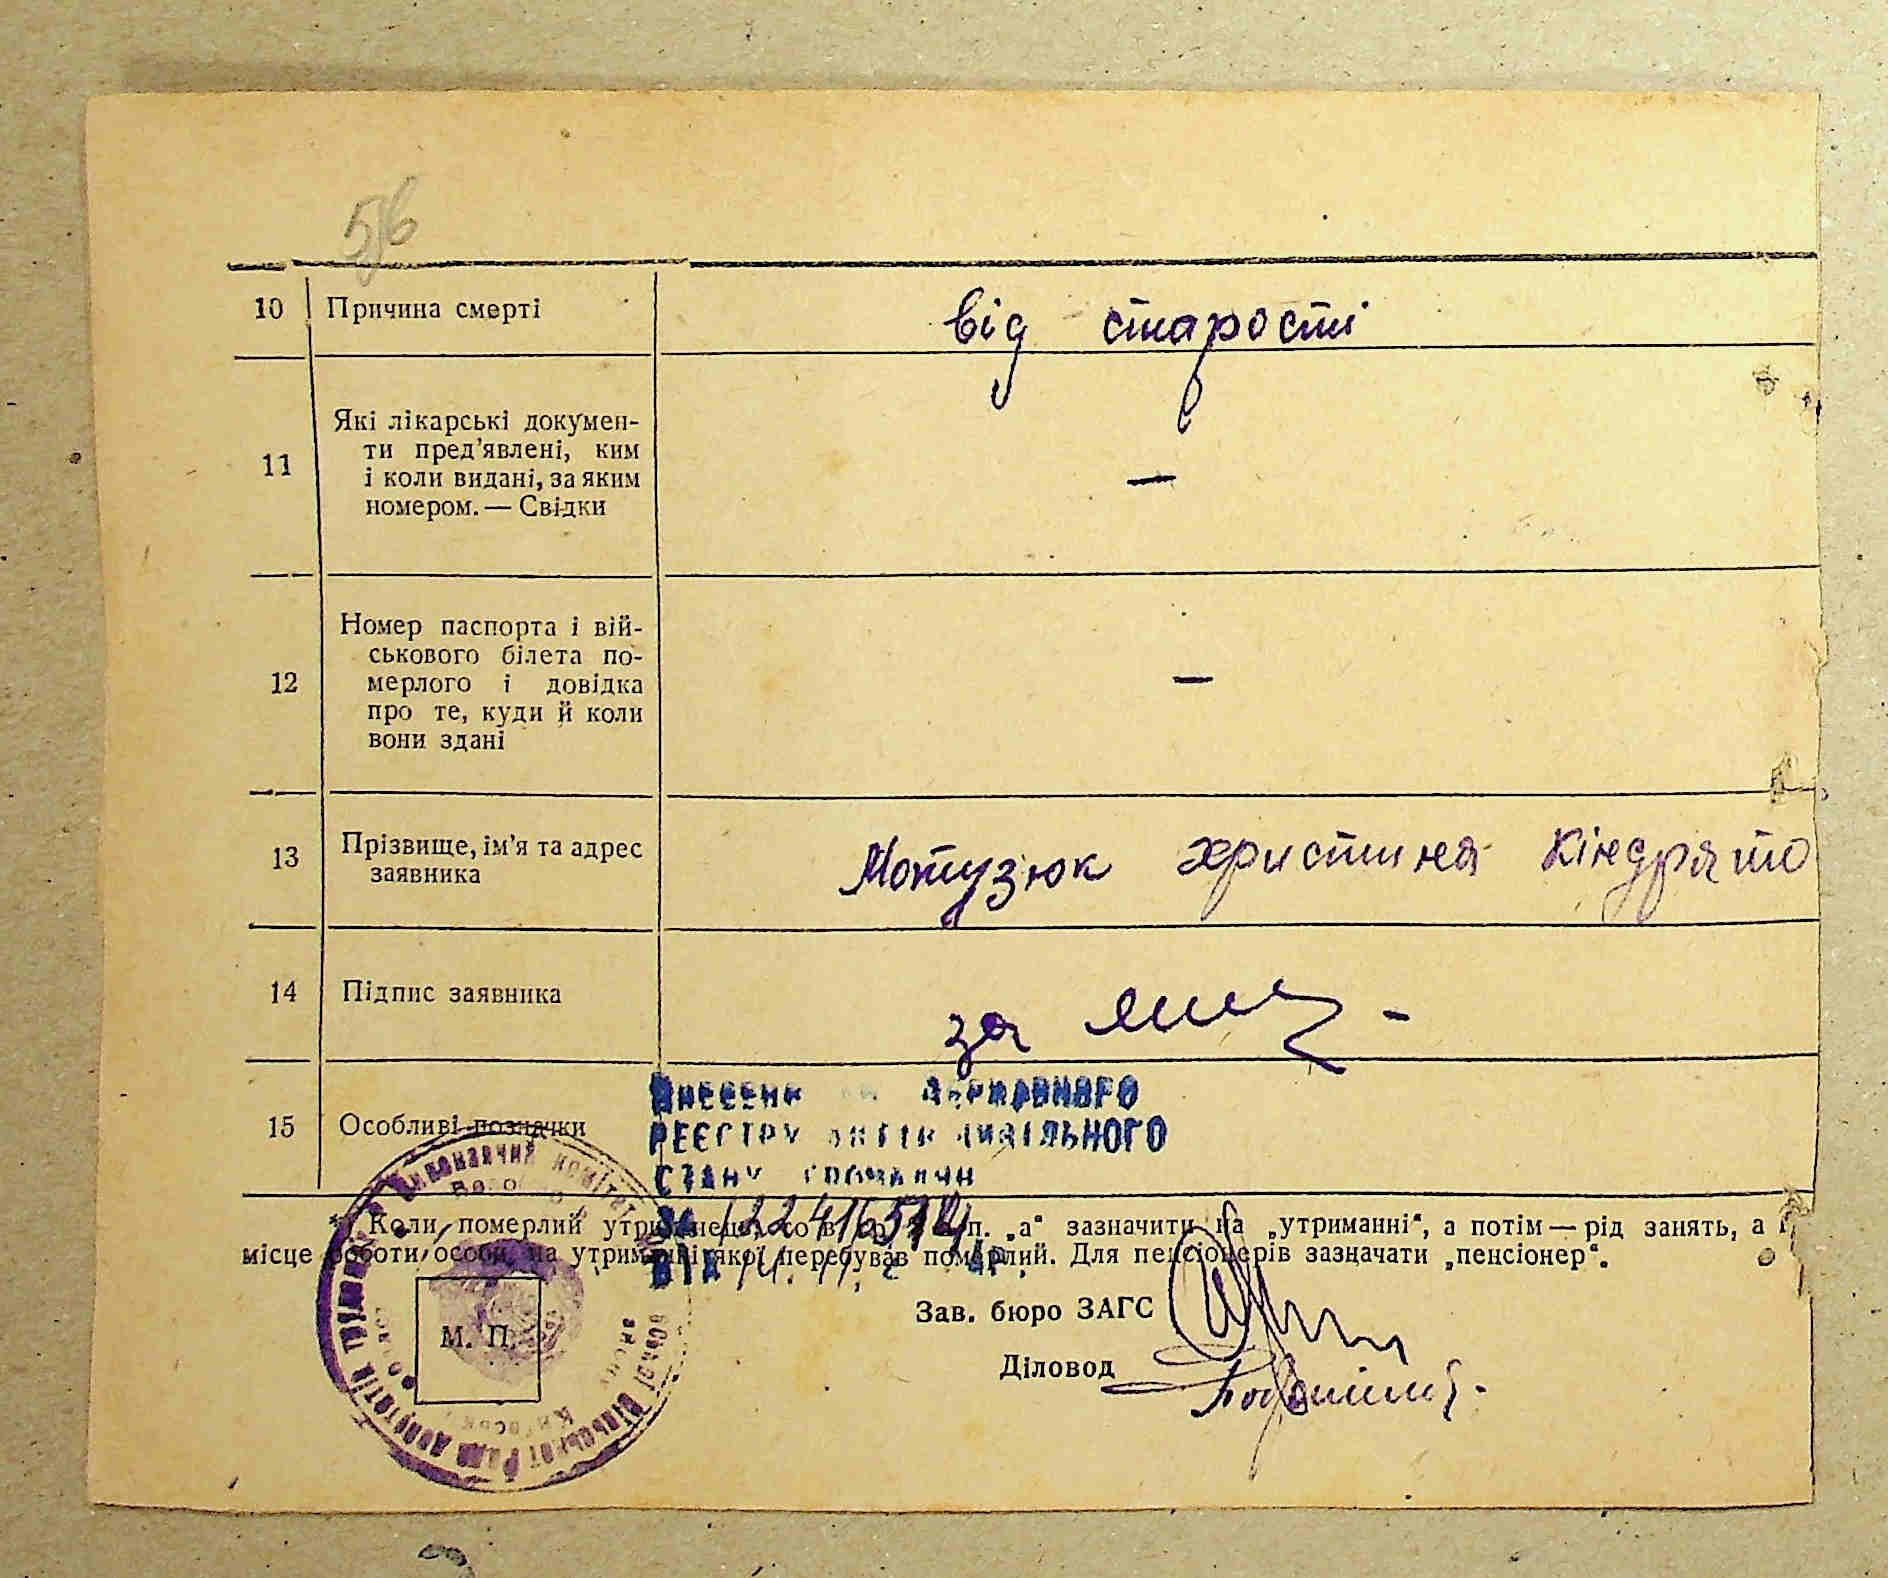 56
10 Причина смерті від старості
11 Які лікарські докумен-
ти пред'явлені, ким
і коли видані, за яким
номером. — Свідки —
12 Номер паспорта і вій-
ськового білета по-
мерлого і довідка
про те, куди й коли
вони здані —
13 Прізвище, ім'я та адрес
заявника Мотузюк христина Кіндрято
14 Підпис заявника за
15 Особливі позначки
Внесено до Державного
РЕЄСТРУ актів цивільного
стану громадян
*) Коли померлий „а“ зазначити на „утриманні“, а потім — рід занять, а
місце роботи особи, на утриманні якої перебував померлий. Для пенсіонерів зазначати „пенсіонер“.
Зав. бюро ЗАГС
Діловод
М. П.
Виконавчий комітет
сільської Ради депутатів трудящих